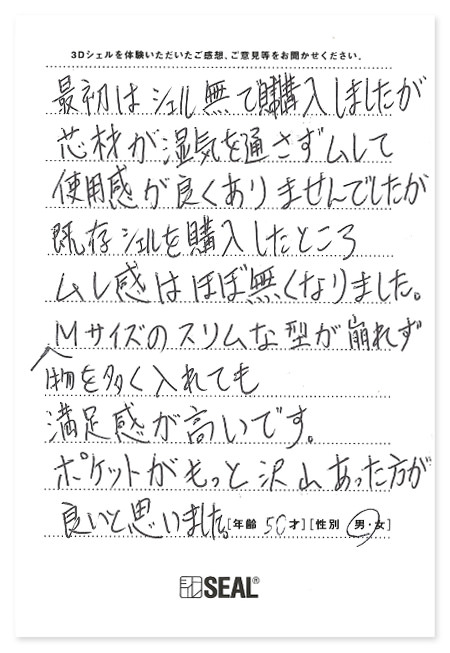 3Dシェルを体験いただいたご感想、ご意見等をお聞かせください。
最初は シェル 無で購入しましたが
芯材が湿気を通さずムレて
使用感が良くありませんでしたが
既存シェルを購入したところ
ムレ感はほぼ無くなりました。
Mサイズのスリムな型が崩れず
物を多く入れても
満足感が高いです。
ポケットがもっと沢山あった方が
良いと思いました。[年齢 50才][性別 男・女]
SEAL®